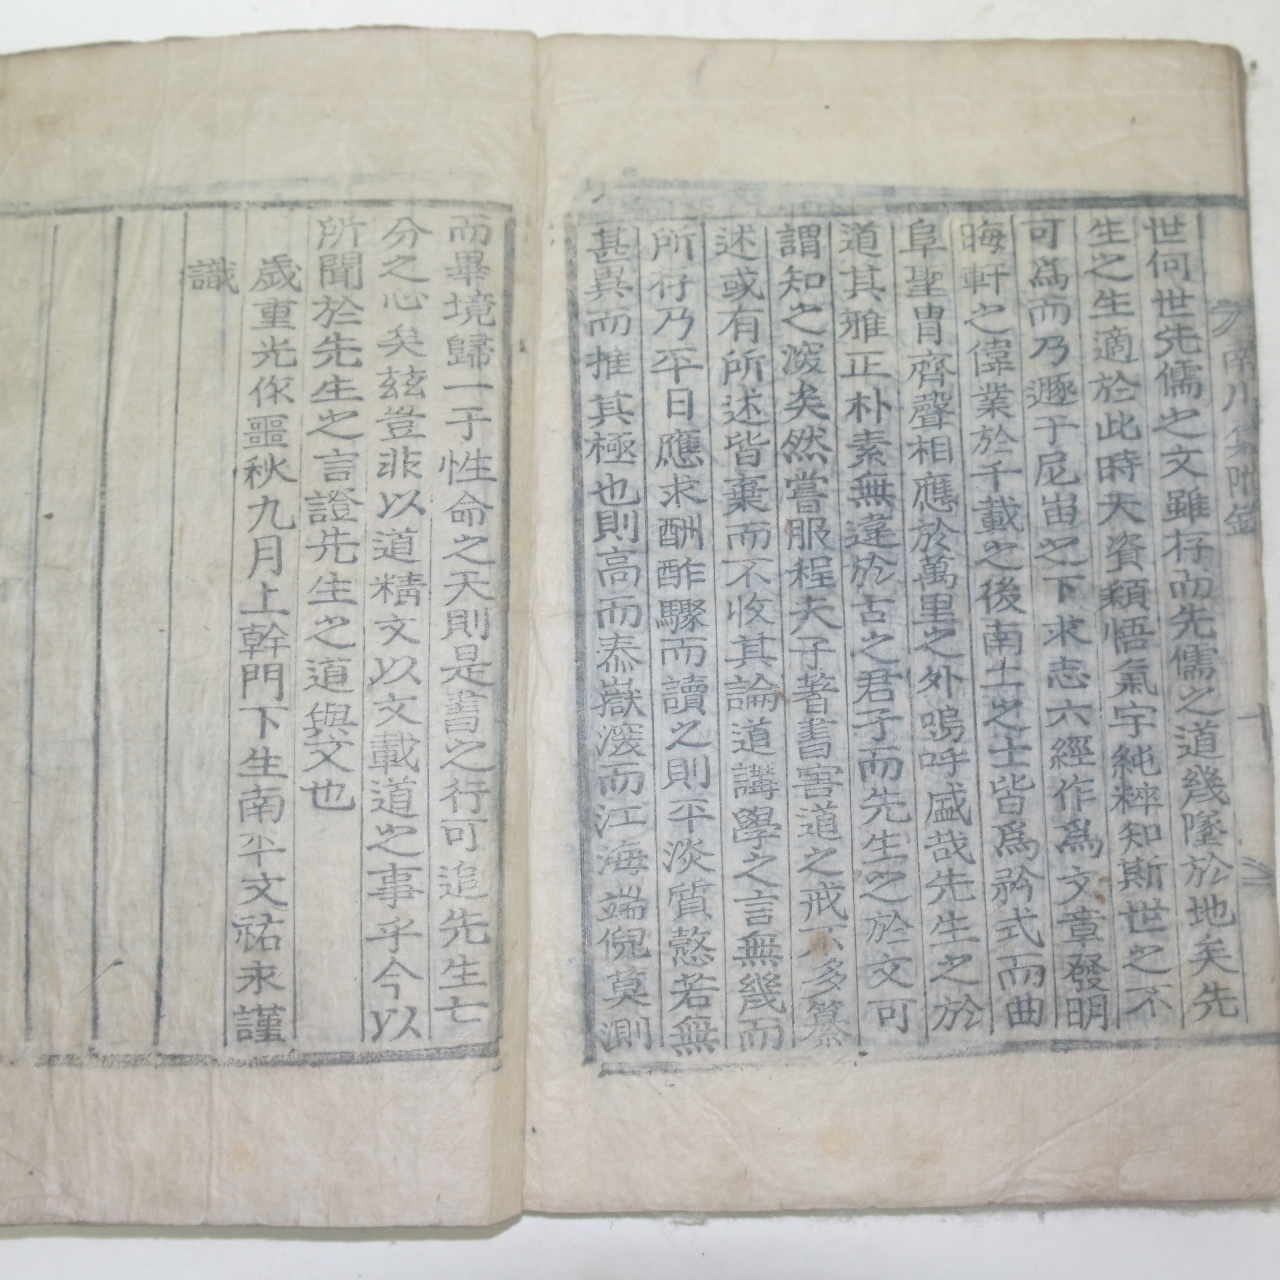 南川集附錄
十
世何世先儒之文雖存而先儒之道幾墜於地矣先
生之生適於此時天資穎悟氣宇純粹知斯世之不
可爲而乃遯于尼峀之下求志六經作爲文章發明
晦軒之偉業於千載之後南土之士皆爲矜式而曲
阜聖胄齊聲相應於萬里之外嗚呼盛哉先生之於
道其雅正朴素無違於古之君子而先生之於文可
謂知之深矣然嘗服程夫子著書害道之戒不多纂
述或有所述皆棄而不收其論道講學之言無幾而
所存乃平日應求酬酢驟而讀之則平淡質慤若無
甚異而推其極也則高而泰嶽深而江海端倪莫測
而畢境歸一于性命之天則是書之行可追先生七
分之心矣玆豈非以道精文以文載道之事乎今以
所聞於先生之言證先生之道與文也
歲重光作噩秋九月上幹門下生南平文祐永謹
識